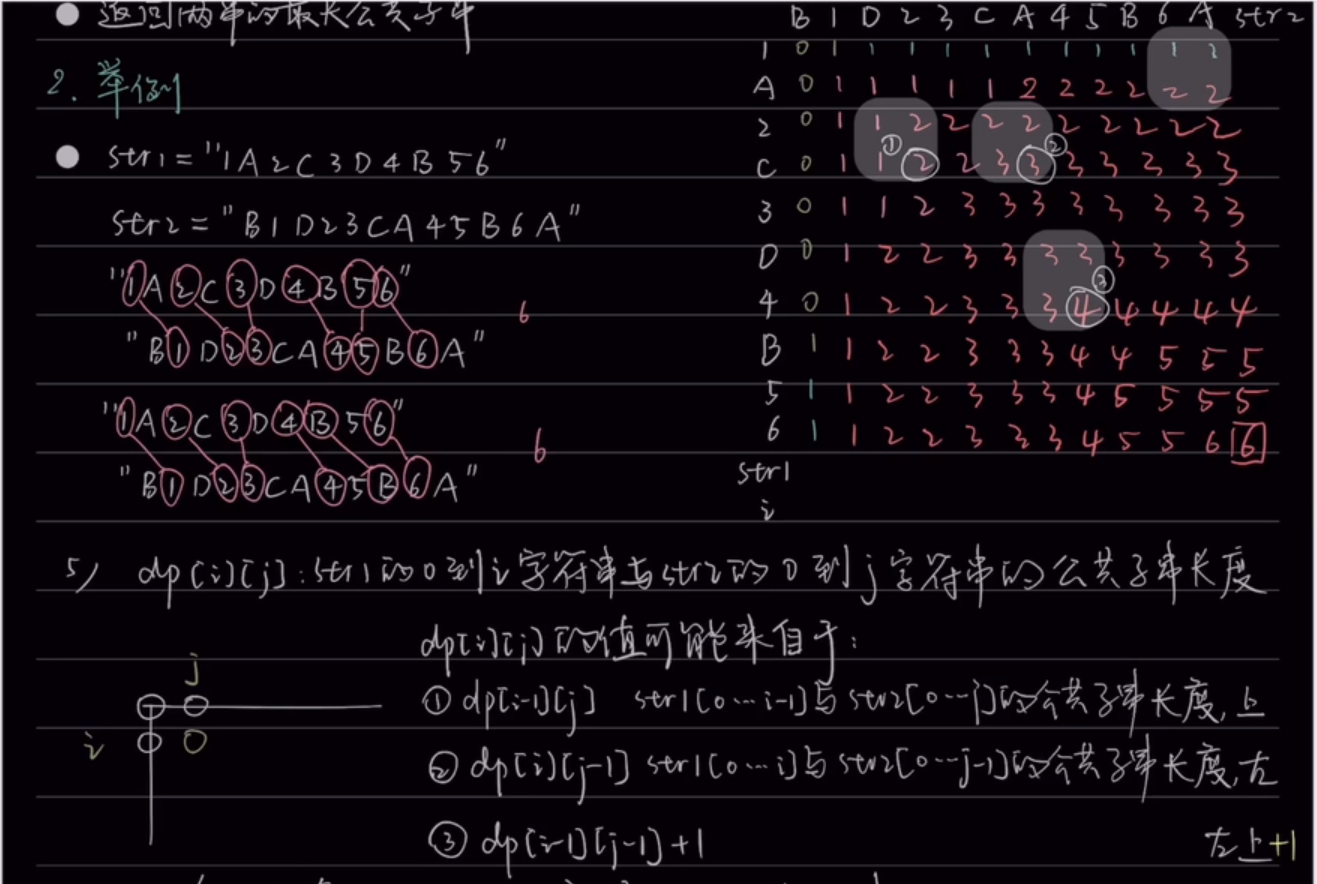 返回两串的最长公共子串
2. 举例
str1="1A2C3D4B56"
str2="B1D23CA45B6A"
"1A2C3D4B56"
6
"B1D23CA45B6A"
"1A2C3D4B56"
6
"B1D23CA45B6A"
B 1 D 2 3 C A 4 5 B 6 A str2
1 0 1 1 1 1 1 1 1 1 1 1 1
A 0 1 1 1 1 1 2 2 2 2 2 2
2 0 1 1 2 2 2 2 2 2 2 2 2
① ②
C 0 1 1 2 2 3 3 3 3 3 3 3
3 0 1 1 2 3 3 3 3 3 3 3 3
D 0 1 2 2 3 3 3 3 3 3 3 3
③
4 0 1 2 2 3 3 3 4 4 4 4 4
B 1 1 2 2 3 3 3 4 4 5 5 5
5 1 1 2 2 3 3 3 4 5 5 5 5
6 1 1 2 2 3 3 3 4 5 5 6 6
str1
i
5) dp[i][j]:str1的0到i字符串与str2的0到j字符串的公共子串长度
dp[i][j]的值可能来自于:
j
① dp[i-1][j] str1[0…i-1]与str2[0…j]的公共子串长度,上
i 0
② dp[i][j-1] str1[0…i]与str2[0…j-1]的公共子串长度,左
③ dp[i-1][j-1]+1 左上+1